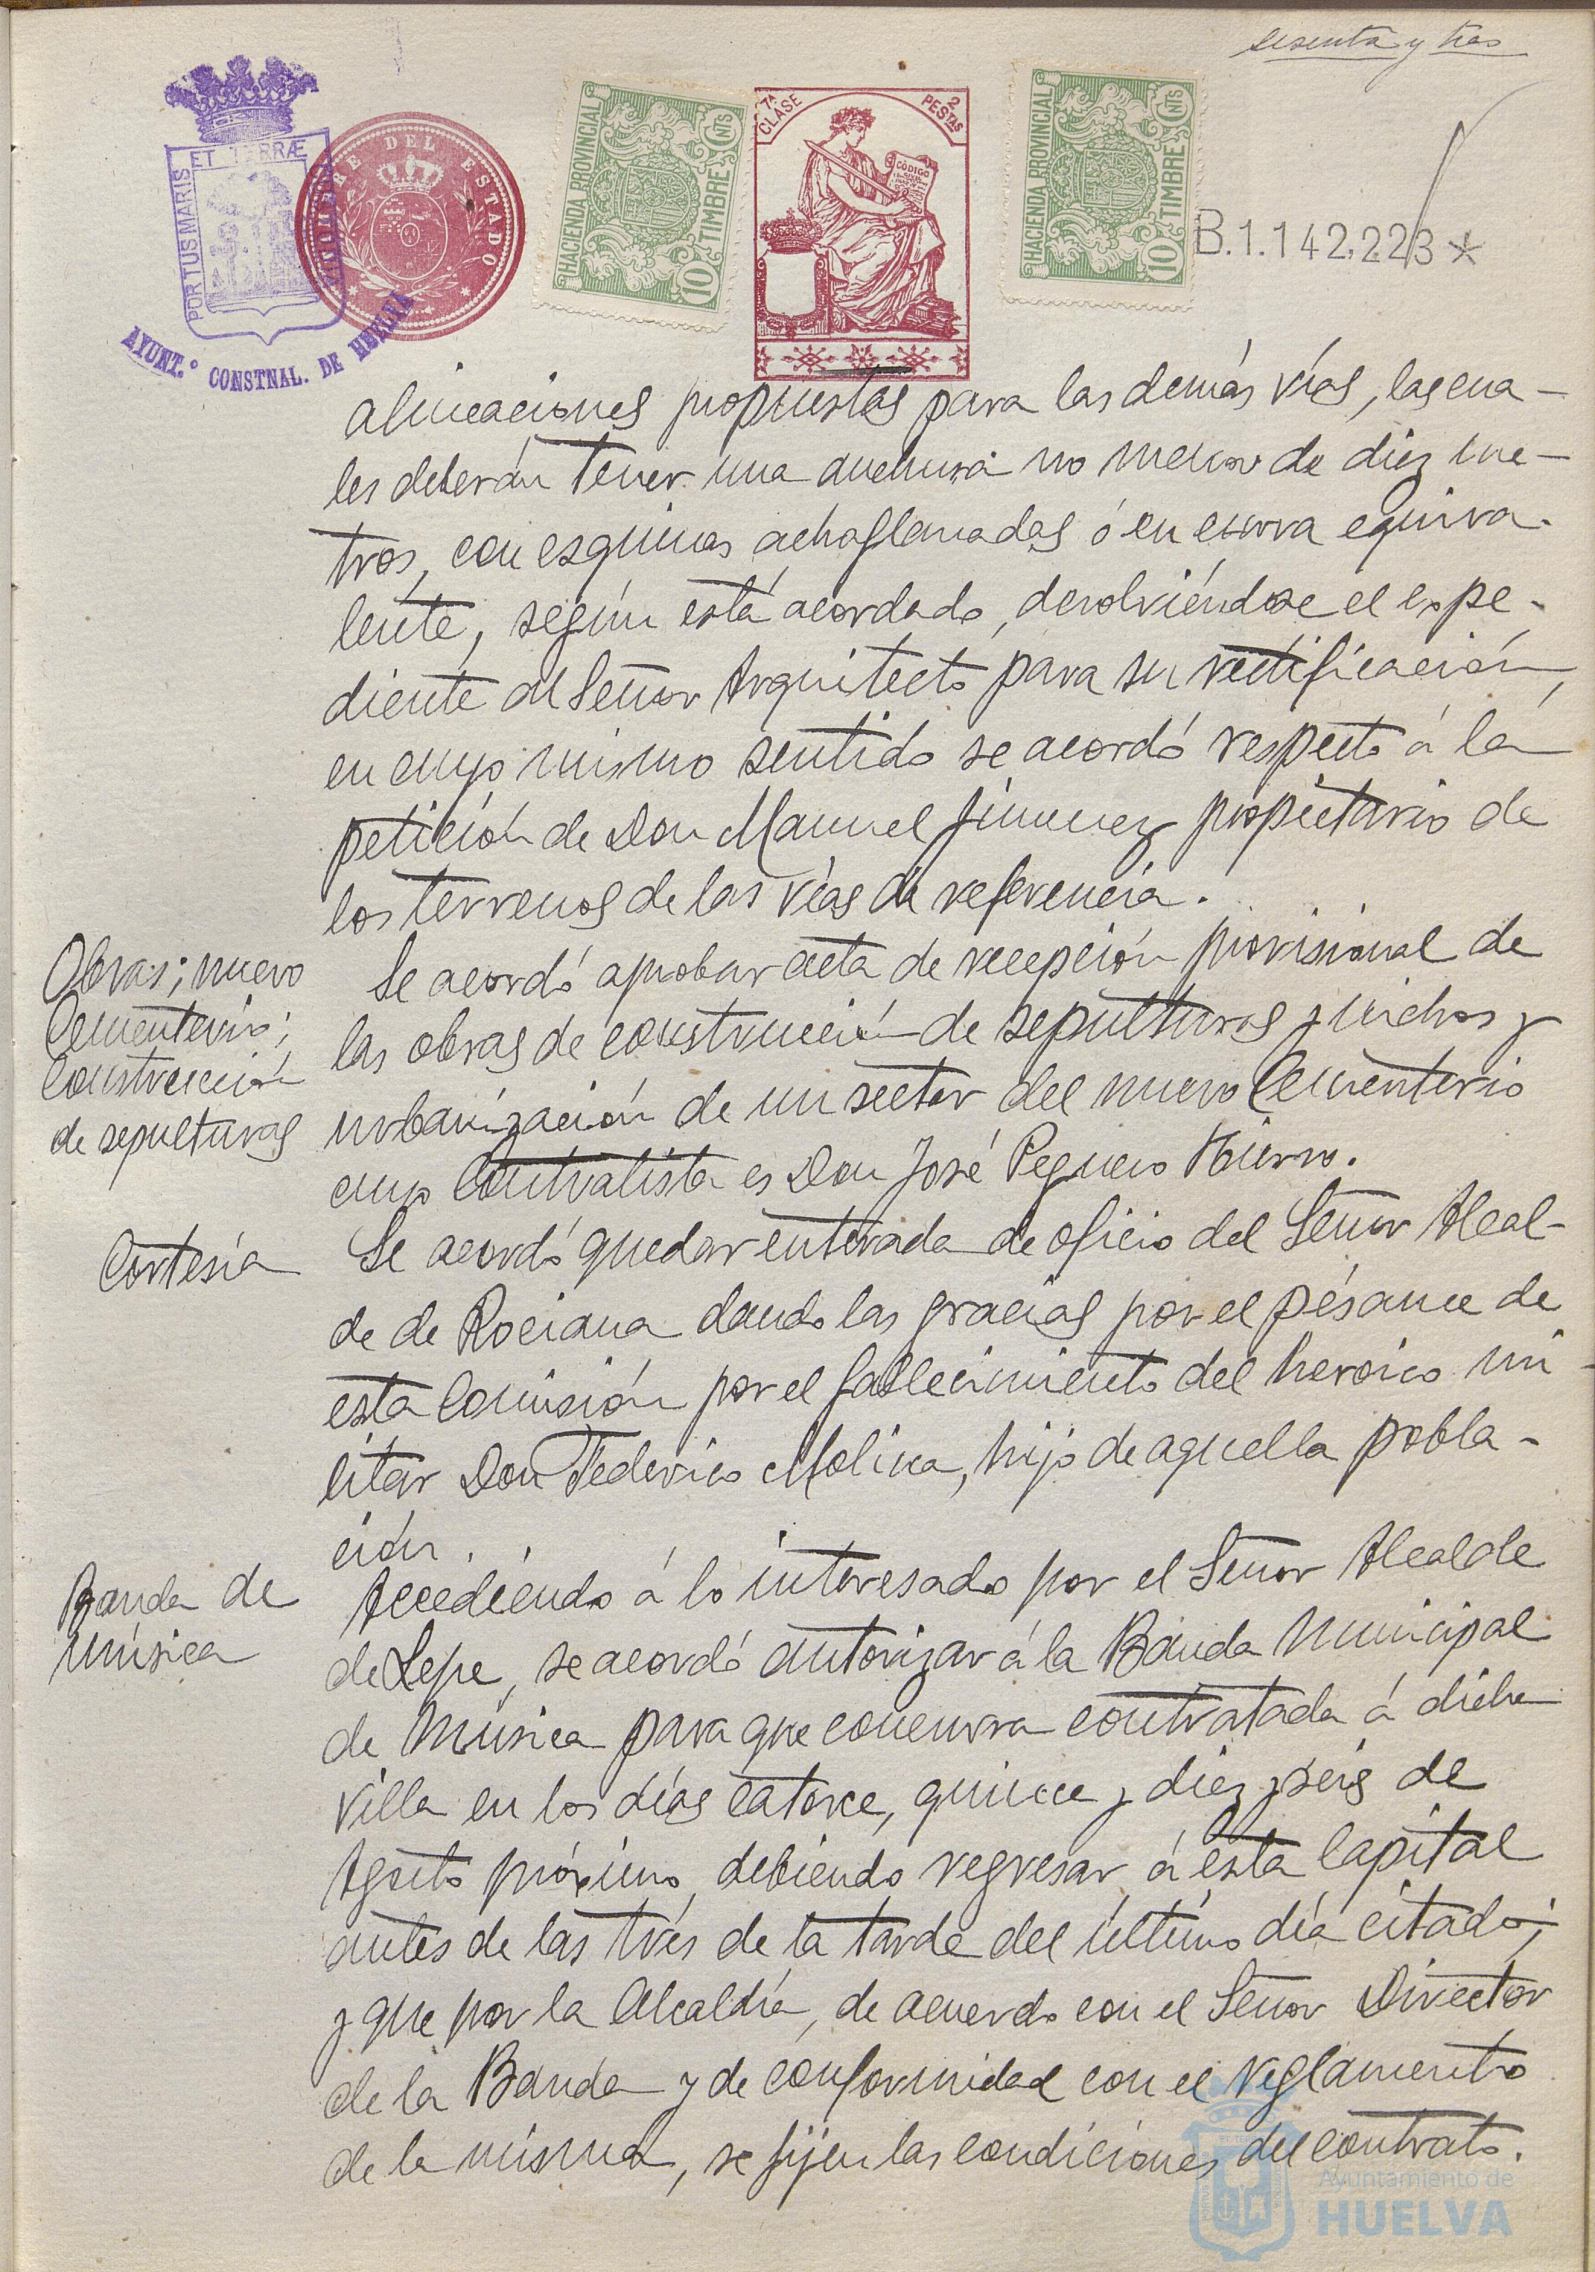 sesenta y tres
PORTUS MARIS ET TERRÆ
AYUNT.º CONSTNAL. DE HUELVA
TIMBRE DEL ESTADO
HACIENDA PROVINCIAL
10 CNTS
TIMBRE
7ª CLASE
2 PESTAS
CÓDIGO
HACIENDA PROVINCIAL
10 CNTS
TIMBRE
B.1.142.223*
alineaciones propuestas para las demás vías, las cua-
les deberán tener una anchura no menor de diez me-
tros, con esquinas achaflanadas ó en curva equiva-
lente, según está acordado, devolviéndose el expe-
diente al Señor Arquitecto para su rectificación,
en cuyo mismo sentido se acordó respecto á la
petición de Don Manuel Jimenez propietario de
los terrenos de las vías de referencia.
Obras; nuevo
Cementerio;
Construcción
de sepulturas
Se acordó aprobar acta de recepción provisional de
las obras de construcción de sepulturas y nichos y
urbanización de un sector del nuevo Cementerio
cuyo Contratista es Don José Peguero Hierro.
Cortesía
Se acordó quedar enterada de oficio del Señor Alcal-
de de Rociana dando las gracias por el pésame de
esta Comisión por el fallecimiento del heroico mi-
litar Don Federico Molina, hijo de aquella pobla-
ción.
Banda de
Música
Accediendo á lo interesado por el Señor Alcalde
de Lepe, se acordó autorizar á la Banda Municipal
de Música para que concurra contratada á dicha
villa en los días catorce, quince y diez y seis de
Agosto próximo, debiendo regresar á esta Capital
antes de las tres de la tarde del último día citado;
y que por la Alcaldía, de acuerdo con el Señor Director
de la Banda y de conformidad con el reglamento
de la misma, se fijen las condiciones del contrato.
Ayuntamiento de
HUELVA